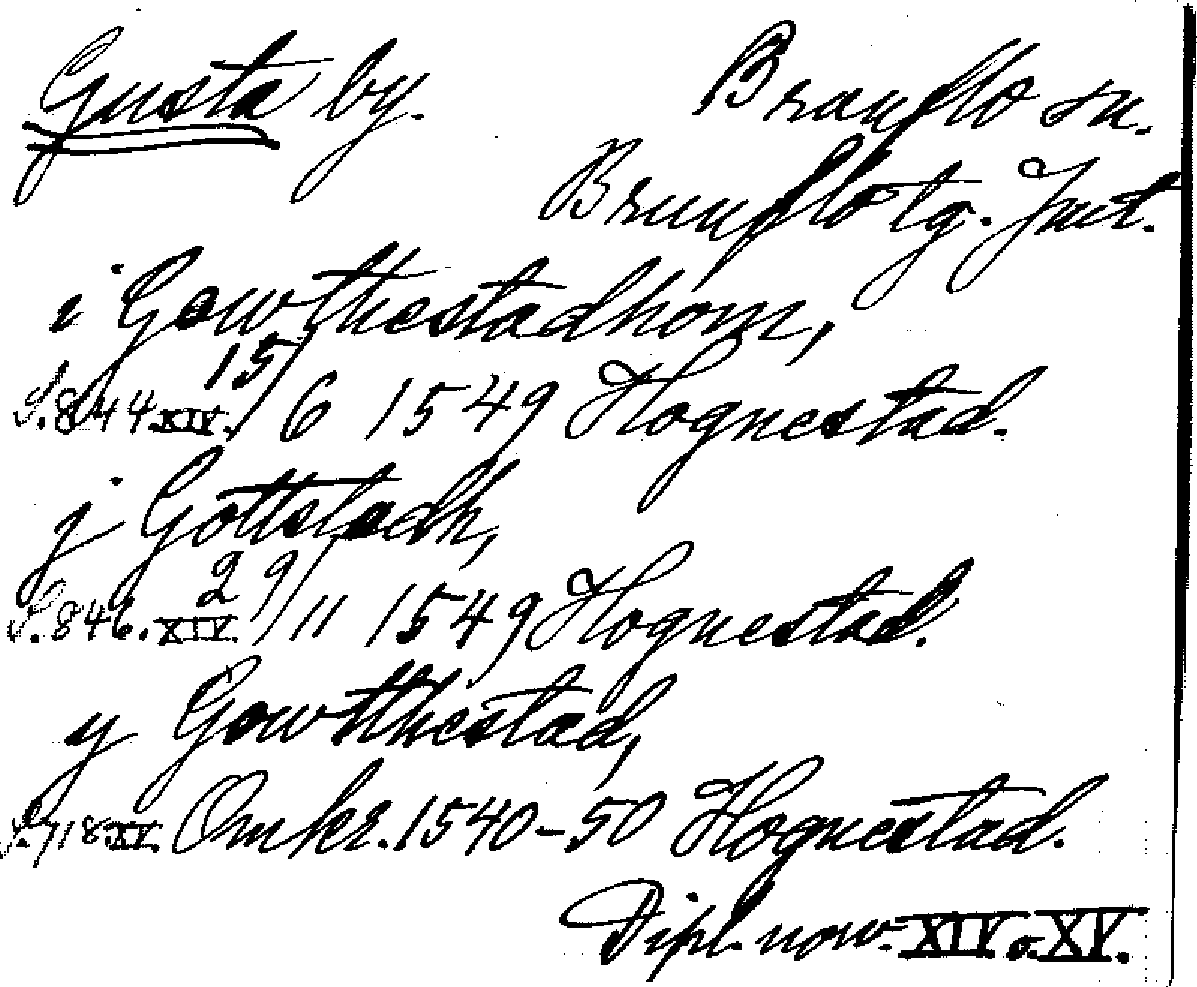 Gusta by. Brunflo sn.
Brunflo tg. Jmt.
i Gowthestadhom,
S. 844 XIV. 15/6 1549 Hognestad.
j Gottstadh,
S. 846. XIV. 29/11 1549 Hognestad.
y Gowtthestad,
S. 718 XV. Omkr. 1540-50 Hognestad.
Dipl. norv. XIV o. XV.